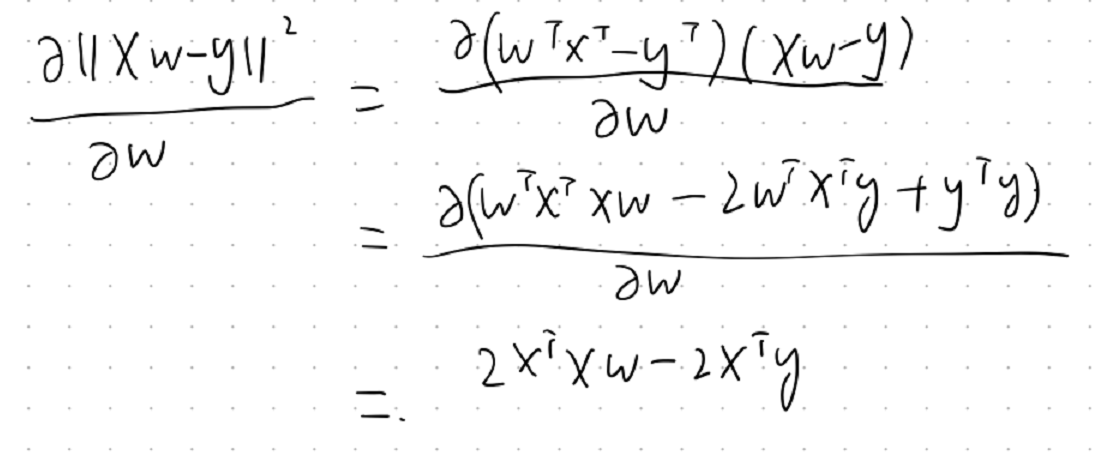 ∂||Xw-y||² / ∂w = ∂(wᵀxᵀ-yᵀ)(Xw-y) / ∂w
= ∂(wᵀxᵀxw - 2wᵀxᵀy + yᵀy) / ∂w
= 2xᵀxw - 2xᵀy